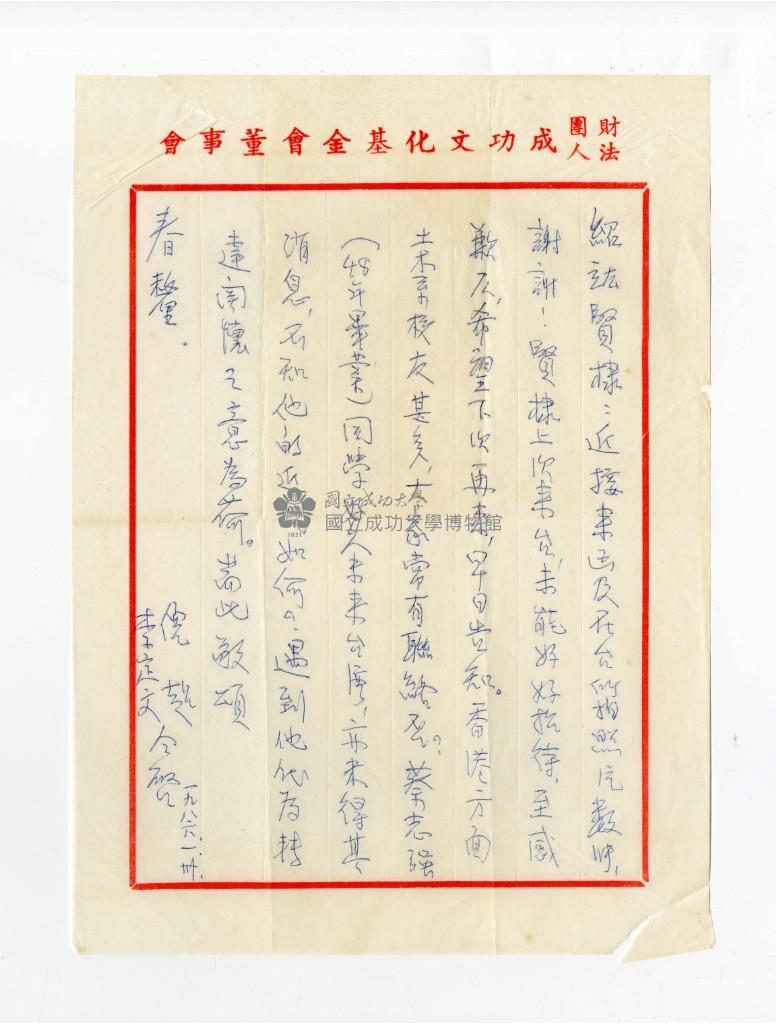 財團法人成功文化基金會董事會
紹誌賢棣：近接來函及在台所拍照片數帧，
謝謝！賢棣上次來台，未能好好招待，至感
歉疚，希望下次再來，早日告知。香港方面
土木系校友甚多，大家常有聯絡否？蔡志強
（48年畢業）同學好久未來台灣，亦未得其
消息，不知他的近 如何？遇到他代為轉
達関懷之意為荷。耑此敬頌
春釐。
倪超
李定文 仝啓
一九八六.一.卅.
國立成功大學
國立成功大學博物館
1931